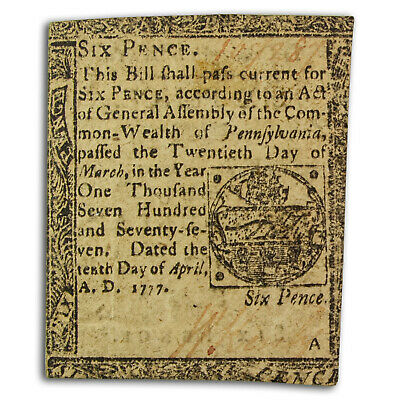 SIX PENCE.
This Bill ſhall paſs current for
SIX PENCE, according to an Act
of General Aſſembly of the Com-
mon-Wealth of Pennſylvania,
paſſed the Twentieth Day of
March, in the Year
One Thouſand
Seven Hundred
and Seventy-ſe-
ven. Dated the
tenth Day of April,
A. D. 1777.
Six Pence.
A